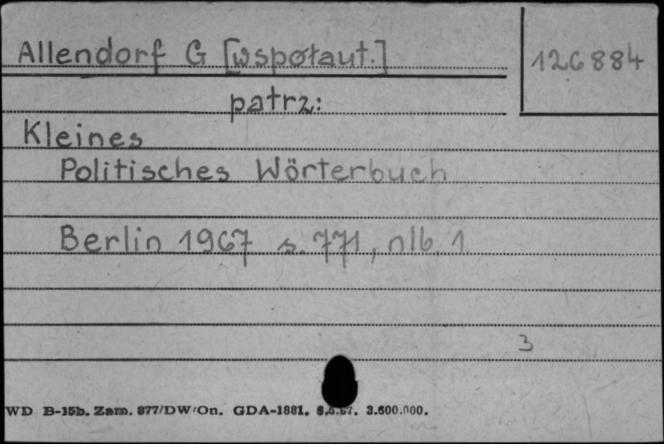 Allendorf G [współaut.]
126884
patrz:
Kleines
Politisches Wörterbuch
Berlin 1967 s. 771, nlb. 1
3
WD B-15b. Zam. 877/DW/On. GDA-1881. 3.600.000.